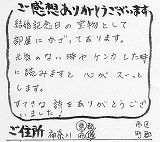 ご感想ありがとうございます
結婚記念日の宝物として
部屋にかざってあります。
元気のない時や ケンカした時
に読みますと 心が スーッと
します。
すてきな 詩をありがとうござ
いました!
ご住所 神奈川 都道府県 市区町郡